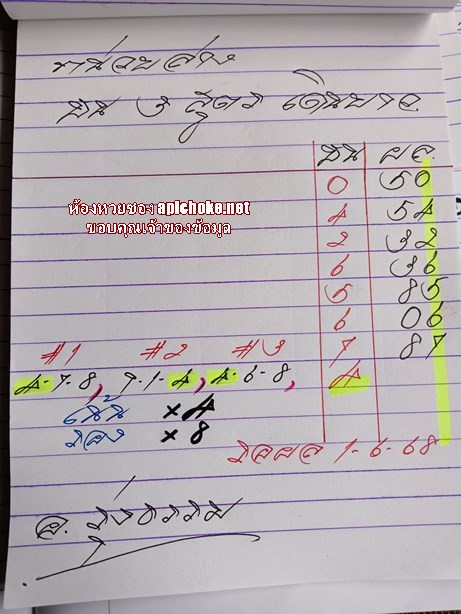 หน่วยล่าง
ชน 3 สูตร เดินยาว
ชน ผล
0 50
4 54
2 32
6 36
5 85
6 06
7 87
ห้องหวยซอง apichoke.net
ขอบคุณเจ้าของข้อมูล
#1 #2 #3
4-7-8, 9-1-4, 4-6-8, 4
เน้น ×4
รอง ×8
รอผล 1-6-68
อ.